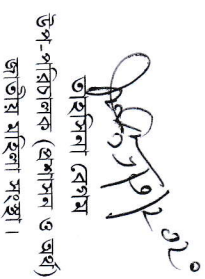 তাহমিনা বেগম
উপ-পরিচালক (প্রশাসন ও অর্থ)
জাতীয় মহিলা সংস্থা।